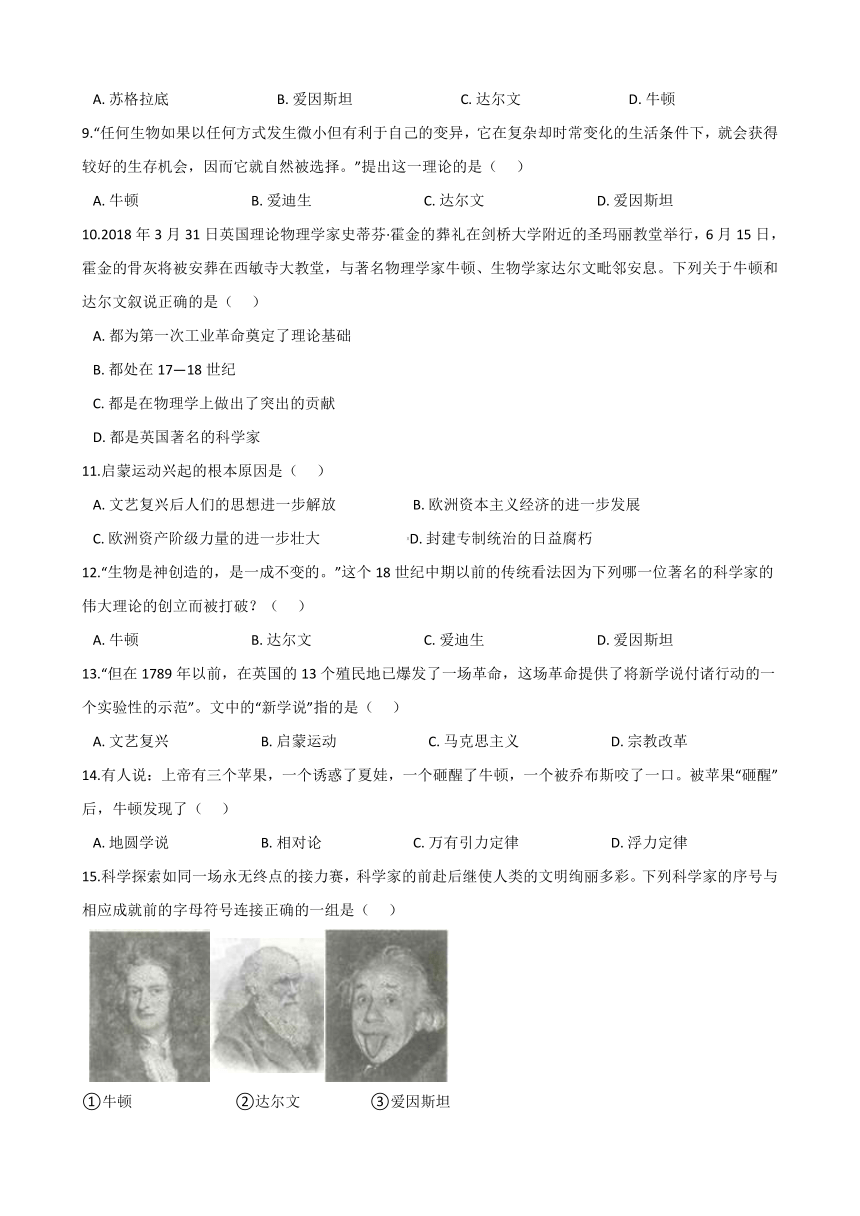 A. 苏格拉底 B. 爱因斯坦 C. 达尔文 D. 牛顿
9.“任何生物如果以任何方式发生微小但有利于自己的变异，它在复杂却时常变化的生活条件下，就会获得
较好的生存机会，因而它就自然被选择。”提出这一理论的是（ ）
A. 牛顿 B. 爱迪生 C. 达尔文 D. 爱因斯坦
10.2018 年 3 月 31 日英国理论物理学家史蒂芬·霍金的葬礼在剑桥大学附近的圣玛丽教堂举行，6 月 15 日，
霍金的骨灰将被安葬在西敏寺大教堂，与著名物理学家牛顿、生物学家达尔文毗邻安息。下列关于牛顿和
达尔文叙说正确的是（ ）
A. 都为第一次工业革命奠定了理论基础
B. 都处在 17—18 世纪
C. 都是在物理学上做出了突出的贡献
D. 都是英国著名的科学家
11.启蒙运动兴起的根本原因是（ ）
A. 文艺复兴后人们的思想进一步解放 B. 欧洲资本主义经济的进一步发展
C. 欧洲资产阶级力量的进一步壮大 D. 封建专制统治的日益腐朽
12.“生物是神创造的，是一成不变的。”这个 18 世纪中期以前的传统看法因为下列哪一位著名的科学家的
伟大理论的创立而被打破？（ ）
A. 牛顿 B. 达尔文 C. 爱迪生 D. 爱因斯坦
13.“但在 1789 年以前，在英国的 13 个殖民地已爆发了一场革命，这场革命提供了将新学说付诸行动的一
个实验性的示范”。文中的“新学说”指的是（ ）
A. 文艺复兴 B. 启蒙运动 C. 马克思主义 D. 宗教改革
14.有人说：上帝有三个苹果，一个诱惑了夏娃，一个砸醒了牛顿，一个被乔布斯咬了一口。被苹果“砸醒”
后，牛顿发现了（ ）
A. 地圆学说 B. 相对论 C. 万有引力定律 D. 浮力定律
15.科学探索如同一场永无终点的接力赛，科学家的前赴后继使人类的文明绚丽多彩。下列科学家的序号与
相应成就前的字母符号连接正确的一组是（ ）
①牛顿 ②达尔文 ③爱因斯坦